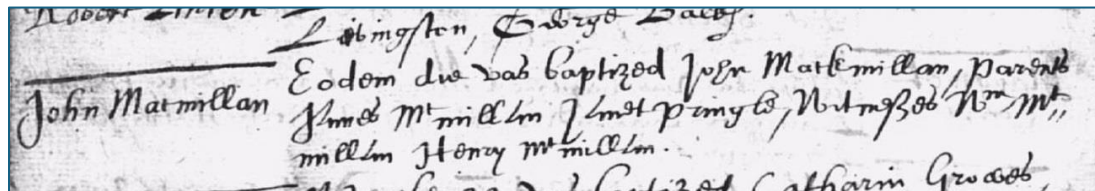 Robert Linton
Livingston, George
John Macmillan
Eodem die was baptized John Mackmillan, Parents
James Mc millan Janet Pringle, Witnesses Wm Mc,,
millan Henry Mc millan.
baptized Catharin Groves